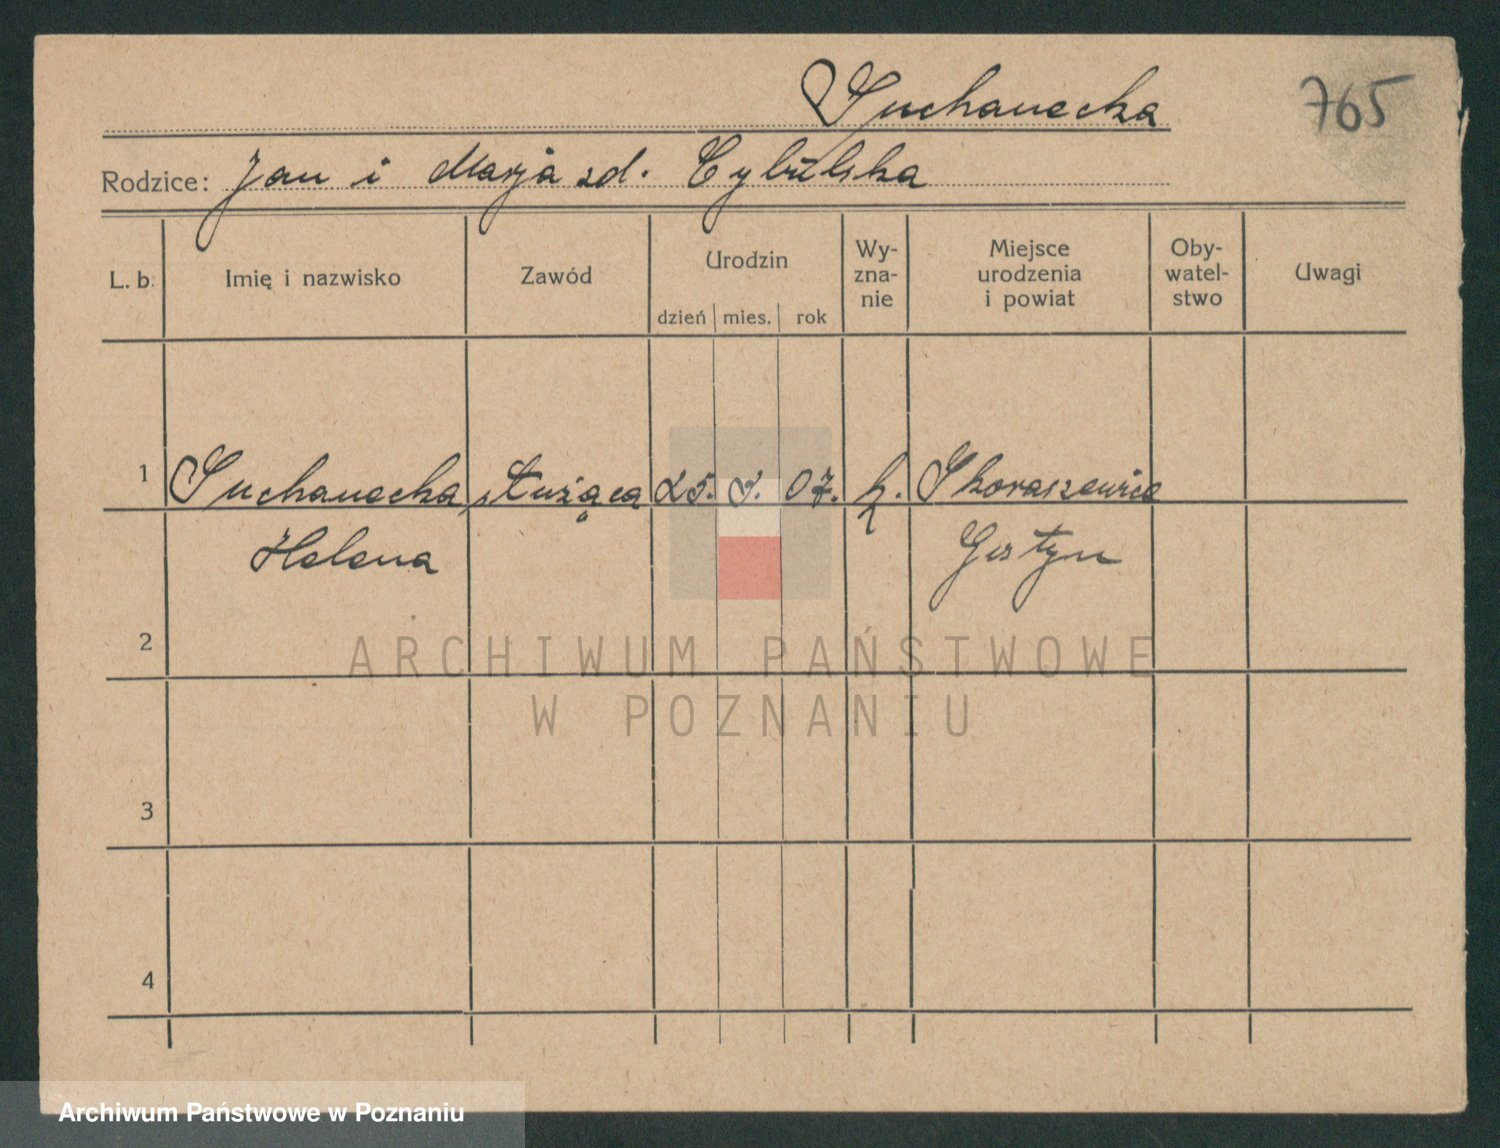 765
Suchanecka
Rodzice: Jan i Marja zd. Cybulska
L. b. Imię i nazwisko Zawód Urodzin dzień mies. rok Wy-zna-nie Miejsce urodzenia i powiat Oby-watel-stwo Uwagi
1 Suchanecka służąca 25. 5. 07. k. Skoraszewice
Helena Gostyn
2
ARCHIWUM PAŃSTWOWE
W POZNANIU
3
4
Archiwum Państwowe w Poznaniu